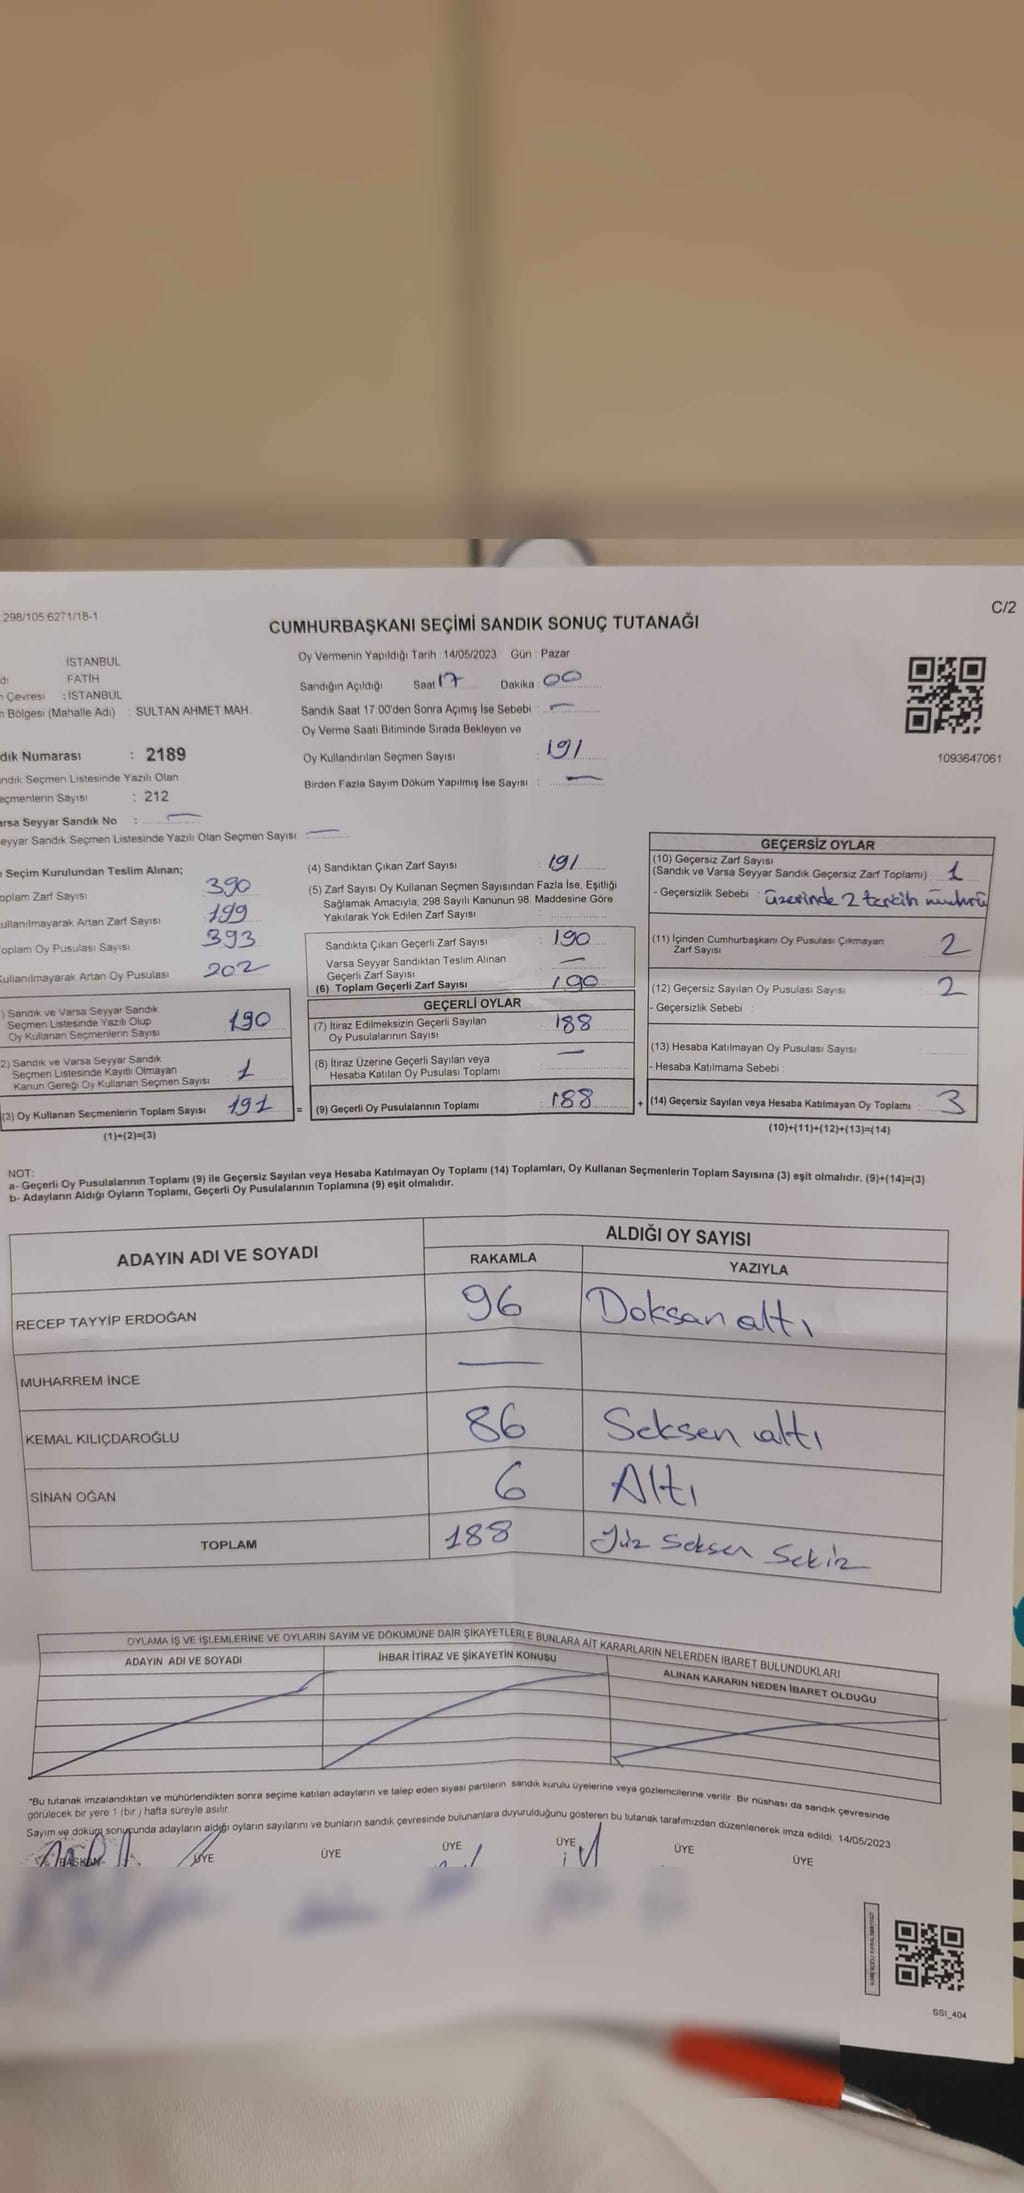 298/105 6271/18-1
C/2
CUMHURBAŞKANI SEÇİMİ SANDIK SONUÇ TUTANAĞI
İSTANBUL
FATİH
Çevresi : İSTANBUL
Bölgesi (Mahalle Adı) : SULTAN AHMET MAH.
dık Numarası : 2189
ndık Seçmen Listesinde Yazılı Olan
eçmenlerin Sayısı : 212
arsa Seyyar Sandık No : —
eyyar Sandık Seçmen Listesinde Yazılı Olan Seçmen Sayısı : —
Oy Vermenin Yapıldığı Tarih 14/05/2023 Gün : Pazar
Sandığın Açıldığı Saat 17 Dakika : 00
Sandık Saat 17:00'den Sonra Açımış İse Sebebi : —
Oy Verme Saati Bitiminde Sırada Bekleyen ve
Oy Kullandırılan Seçmen Sayısı : 191
Birden Fazla Sayım Döküm Yapılmış İse Sayısı : —
1093647061
Seçim Kurulundan Teslim Alınan;
oplam Zarf Sayısı 390
ullanılmayarak Artan Zarf Sayısı 199
oplam Oy Pusulası Sayısı 393
Kullanılmayarak Artan Oy Pusulası 202
) Sandık ve Varsa Seyyar Sandık
Seçmen Listesinde Yazılı Olup
Oy Kullanan Seçmenlerin Sayısı 190
2) Sandık ve Varsa Seyyar Sandık
Seçmen Listesinde Kayıtlı Olmayan
Kanun Gereği Oy Kullanan Seçmen Sayısı 1
(3) Oy Kullanan Seçmenlerin Toplam Sayısı 191
(1)+(2)=(3)
(4) Sandıktan Çıkan Zarf Sayısı : 191
(5) Zarf Sayısı Oy Kullanan Seçmen Sayısından Fazla İse, Eşitliği
Sağlamak Amacıyla, 298 Sayılı Kanunun 98. Maddesine Göre
Yakılarak Yok Edilen Zarf Sayısı :
Sandıkta Çıkan Geçerli Zarf Sayısı : 190
Varsa Seyyar Sandıktan Teslim Alınan
Geçerli Zarf Sayısı : —
(6) Toplam Geçerli Zarf Sayısı : 190
GEÇERLİ OYLAR
(7) İtiraz Edilmeksizin Geçerli Sayılan
Oy Pusulalarının Sayısı : 188
(8) İtiraz Üzerine Geçerli Sayılan veya
Hesaba Katılan Oy Pusulası Toplamı : —
= (9) Geçerli Oy Pusulalarının Toplamı : 188
GEÇERSİZ OYLAR
(10) Geçersiz Zarf Sayısı
(Sandık ve Varsa Seyyar Sandık Geçersiz Zarf Toplamı) : 1
- Geçersizlik Sebebi : üzerinde 2 tercih mührü
(11) İçinden Cumhurbaşkanı Oy Pusulası Çıkmayan
Zarf Sayısı 2
(12) Geçersiz Sayılan Oy Pusulası Sayısı : 2
- Geçersizlik Sebebi :
(13) Hesaba Katılmayan Oy Pusulası Sayısı
- Hesaba Katılmama Sebebi :
+ (14) Geçersiz Sayılan veya Hesaba Katılmayan Oy Toplamı : 3
(10)+(11)+(12)+(13)=(14)
NOT:
a- Geçerli Oy Pusulalarının Toplamı (9) ile Geçersiz Sayılan veya Hesaba Katılmayan Oy Toplamı (14) Toplamları, Oy Kullanan Seçmenlerin Toplam Sayısına (3) eşit olmalıdır. (9)+(14)=(3)
b- Adayların Aldığı Oyların Toplamı, Geçerli Oy Pusulalarının Toplamına (9) eşit olmalıdır.
ADAYIN ADI VE SOYADI
ALDIĞI OY SAYISI
RAKAMLA YAZIYLA
RECEP TAYYİP ERDOĞAN 96 Doksan altı
MUHARREM İNCE —
KEMAL KILIÇDAROĞLU 86 Seksen altı
SİNAN OĞAN 6 Altı
TOPLAM 188 Yüz Seksen Sekiz
OYLAMA İŞ VE İŞLEMLERİNE VE OYLARIN SAYIM VE DÖKÜMÜNE DAİR ŞİKAYETLERLE BUNLARA AİT KARARLARIN NELERDEN İBARET BULUNDUKLARI
ADAYIN ADI VE SOYADI İHBAR İTİRAZ VE ŞİKAYETİN KONUSU ALINAN KARARIN NEDEN İBARET OLDUĞU
*Bu tutanak imzalandıktan ve mühürlendikten sonra seçime katılan adayların ve talep eden siyasi partilerin sandık kurulu üyelerine veya gözlemcilerine verilir. Bir nüshası da sandık çevresinde
görülecek bir yere 1 (bir) hafta süreyle asılır.
Sayım ve döküm sonucunda adayların aldığı oyların sayılarını ve bunların sandık çevresinde bulunanlara duyurulduğunu gösteren bu tutanak tarafımızdan düzenlenerek imza edildi. 14/05/2023
BAŞKAN ÜYE ÜYE ÜYE ÜYE ÜYE ÜYE
SSI_404